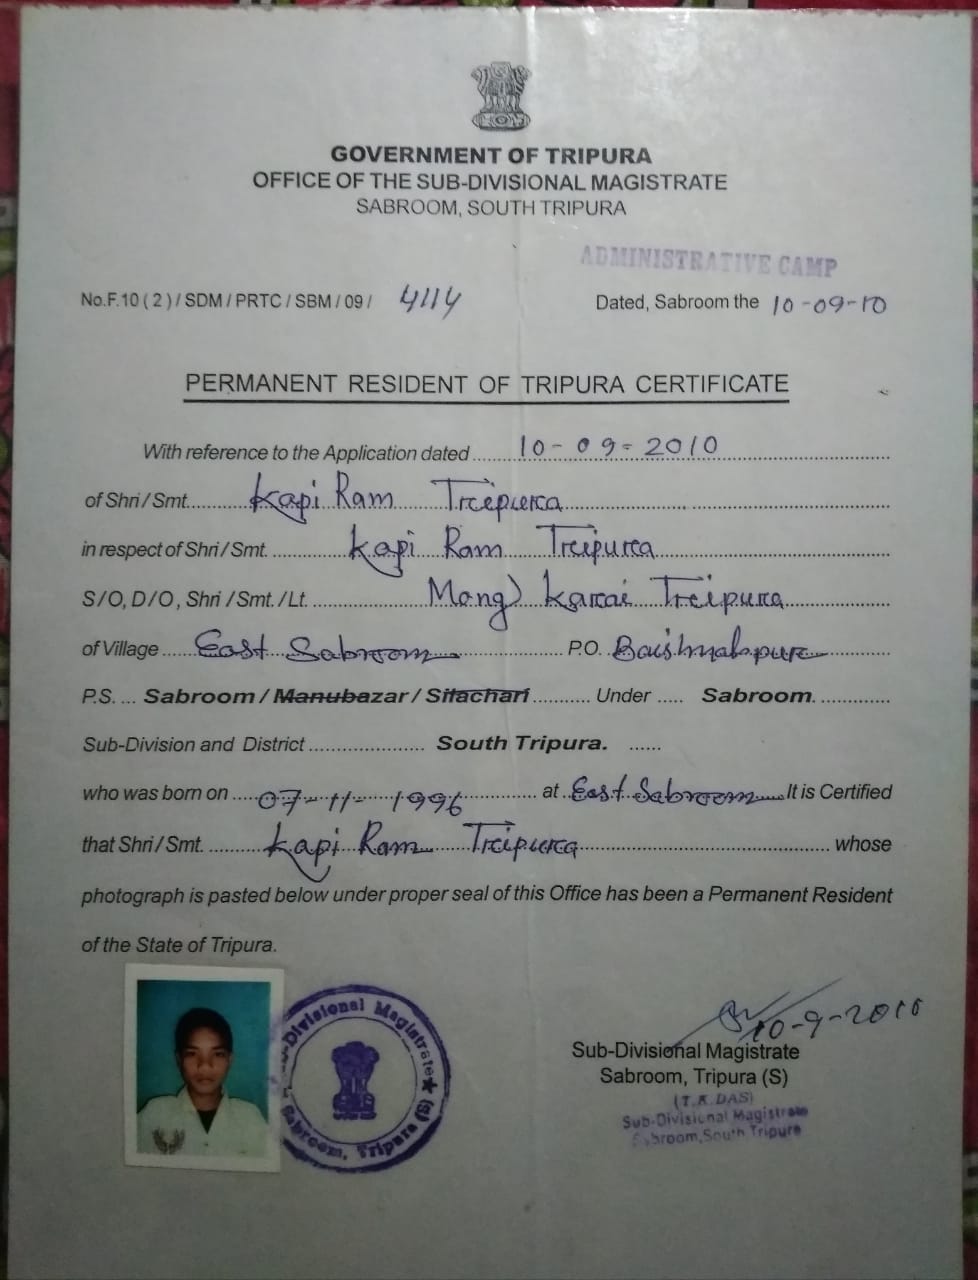 GOVERNMENT OF TRIPURA
OFFICE OF THE SUB-DIVISIONAL MAGISTRATE
SABROOM, SOUTH TRIPURA
ADMINISTRATIVE CAMP
No.F.10 ( 2 ) / SDM / PRTC / SBM / 09 / 4114 Dated, Sabroom the 10-09-10
PERMANENT RESIDENT OF TRIPURA CERTIFICATE
With reference to the Application dated 10-09-2010
of Shri / Smt. Kapi Ram Tripura
in respect of Shri / Smt. Kapi Ram Tripura
S / O, D / O , Shri / Smt. / Lt. Karai Tripura
of Village East Sabroom P.O.
P.S. ... Sabroom / Manubazar / Silachari Under Sabroom.
Sub-Division and District South Tripura.
who was born on 07-11-1996 at East Sabroom It is Certified
that Shri / Smt. Kapi Ram Tripura whose
photograph is pasted below under proper seal of this Office has been a Permanent Resident
of the State of Tripura.
Sub-Divisional Magistrate
Sabroom, Tripura (S)
10-9-2010
Sub-Divisional Magistrate
Sabroom, Tripura (S)
(T.K.DAS)
Sub-Divisional Magistrate
Sabroom, South Tripura